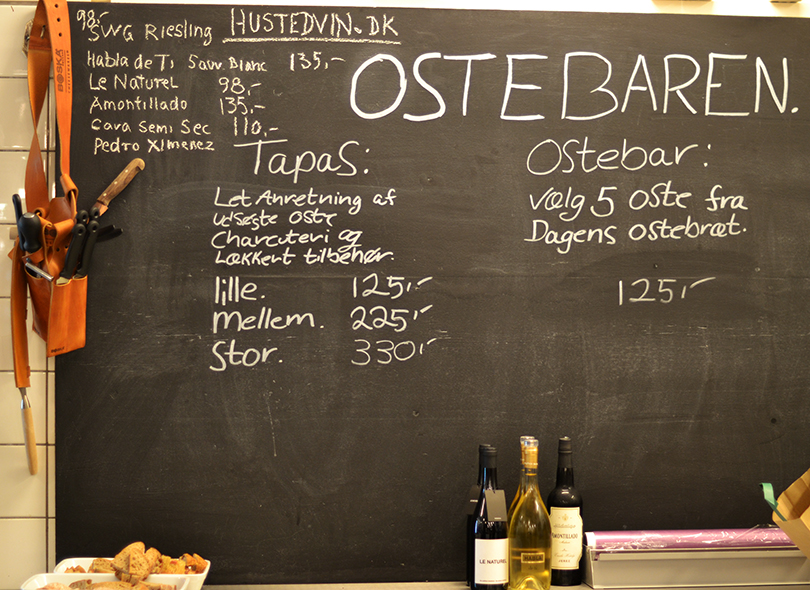 98,-
SWG Riesling
HUSTEDVIN.DK
Habla de Ti Sauv Blanc 135,-
Le Naturel 98,-
Amontillado 135,-
Cava Semi Sec 110,-
Pedro Ximenez
OSTEBAREN.
Tapas:
Let Anretning af
udsøgte oste
Charcuteri og
Lækkert tilbehør.
lille. 125,-
mellem. 225,-
Stor. 330,-
Ostebar:
Vælg 5 oste fra
Dagens ostebræt.
125,-
BOSKA
LE NATUREL
HABLA
AMONTILLADO